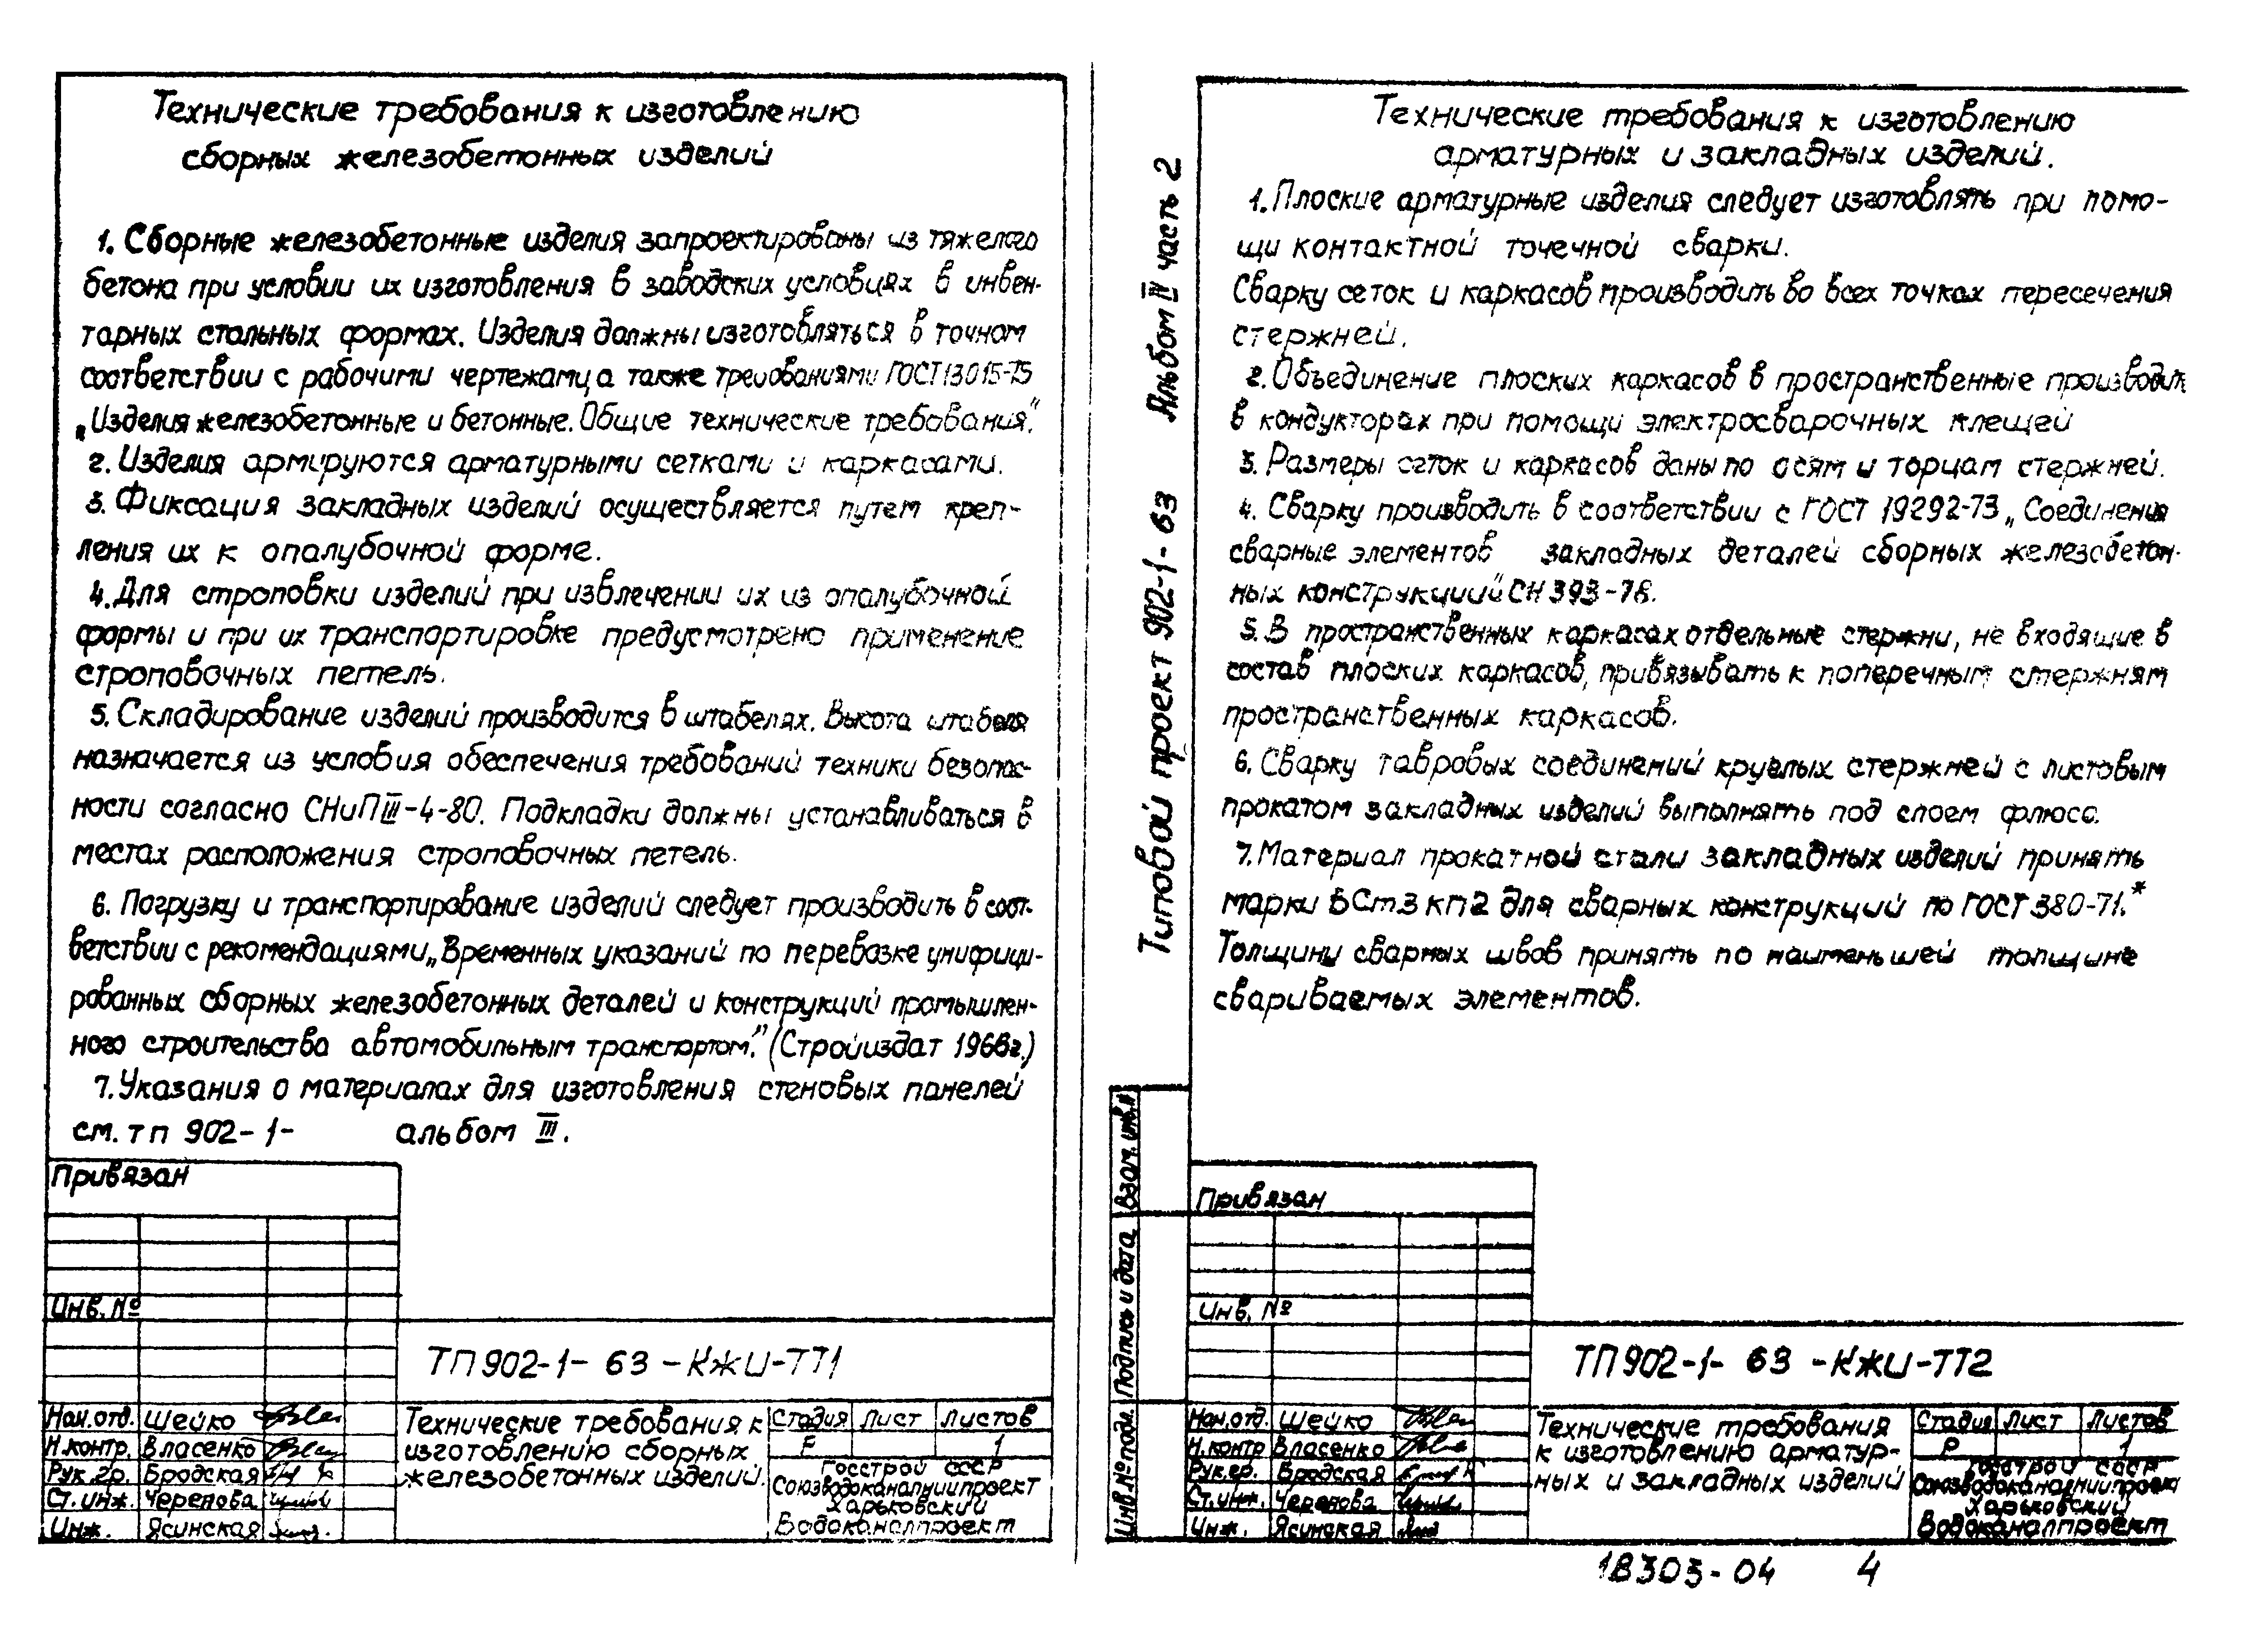 Технические требования к изготовлению
сборных железобетонных изделий
1. Сборные железобетонные изделия запроектированы из тяжелого
бетона при условии их изготовления в заводских условиях в инвен-
тарных стальных формах. Изделия должны изготовляться в точном
соответствии с рабочими чертежами, а также требованиями ГОСТ 13015-75
„Изделия железобетонные и бетонные. Общие технические требования".
2. Изделия армируются арматурными сетками и каркасами.
3. Фиксация закладных изделий осуществляется путем креп-
ления их к опалубочной форме.
4. Для строповки изделий при извлечении их из опалубочной
формы и при их транспортировке предусмотрено применение
строповочных петель.
5. Складирование изделий производится в штабелях. Высота штабеля
назначается из условия обеспечения требований техники безопас-
ности согласно СНиП III-4-80. Подкладки должны устанавливаться в
местах расположения строповочных петель.
6. Погрузку и транспортирование изделий следует производить в соот-
ветствии с рекомендациями „Временных указаний по перевозке унифици-
рованных сборных железобетонных деталей и конструкций промышлен-
ного строительства автомобильным транспортом." (Стройиздат 1966г.)
7. Указания о материалах для изготовления стеновых панелей
см. тп 902-1- альбом III.
Привязан
Инв. №
ТП 902-1- 63 -КЖИ-ТТ1
Нач. отд. Шейко
Н. контр. Власенко
Рук. гр. Бродская
Ст. инж. Черенова
Инж. Ясинская
Технические требования к
изготовлению сборных
железобетонных изделий.
Стадия Лист Листов
Р 1
Госстрой СССР
Союзводоканалниипроект
Харьковский
Водоканалпроект
Типовой проект 902-1-63 Альбом IV часть 2
Технические требования к изготовлению
арматурных и закладных изделий.
1. Плоские арматурные изделия следует изготовлять при помо-
щи контактной точечной сварки.
Сварку сеток и каркасов производить во всех точках пересечения
стержней.
2. Объединение плоских каркасов в пространственные производить
в кондукторах при помощи электросварочных клещей
3. Размеры сеток и каркасов даны по осям и торцам стержней.
4. Сварку производить в соответствии с ГОСТ 19292-73 „Соединения
сварные элементов закладных деталей сборных железобетон-
ных конструкций" СН 393-78.
5. В пространственных каркасах отдельные стержни, не входящие в
состав плоских каркасов, привязывать к поперечным стержням
пространственных каркасов.
6. Сварку тавровых соединений круглых стержней с листовым
прокатом закладных изделий выполнять под слоем флюса.
7. Материал прокатной стали закладных изделий принять
марки ВСт3кп2 для сварных конструкций по ГОСТ 380-71.*
Толщину сварных швов принять по наименьшей толщине
свариваемых элементов.
Взам. инв. №
Подпись и дата
Инв. № подл.
Привязан
Инв. №
ТП 902-1- 63 -КЖИ-ТТ2
Нач. отд. Шейко
Н. контр Власенко
Рук. гр. Бродская
Ст. инж. Черенова
Инж. Ясинская
Технические требования
к изготовлению арматур-
ных и закладных изделий
Стадия Лист Листов
Р 1
Госстрой СССР
Союзводоканалниипроект
Харьковский
Водоканалпроект
18303-04 4